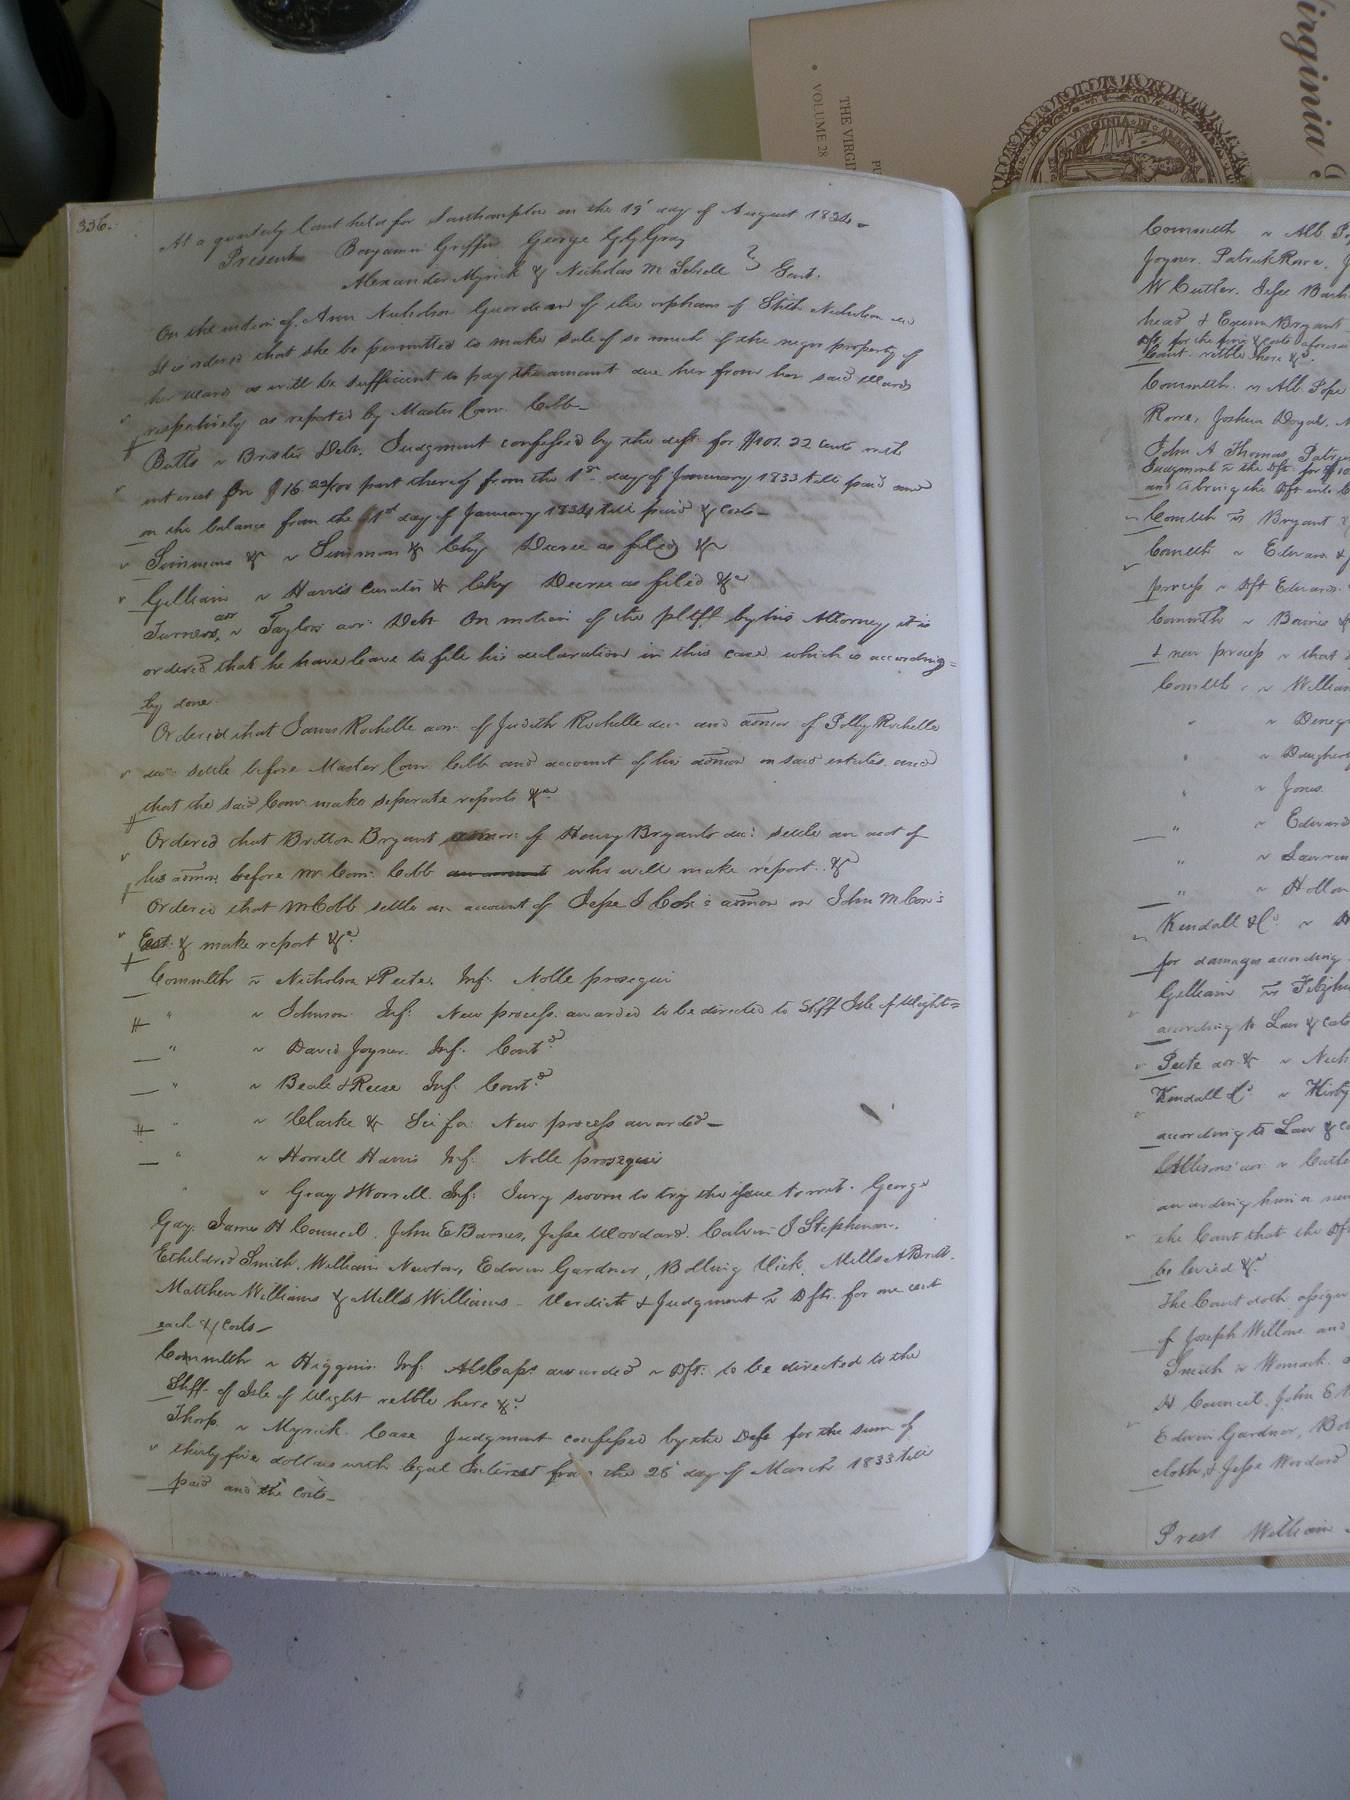 336.
At a quarterly Court held for Southampton on the 19 day of August 1834
Present Benjamin Griffin George Gray
Alexander Myrick & Nicholas M Sebrell } Gent.
On the motion of Ann Nicholson Guardian of the orphans of Stith Nicholson dec
It is ordered that she be permitted to make sale of so much of the negro property of
her wards as will be sufficient to pay the amount due her from her said wards
respectively as reported by Master Com. Cobb
Butts v Brister Debt. Judgment confessed by the deft. for $101. 22 cents with
interest on $16.22/100 part thereof from the 1st day of January 1833 till paid and
on the balance from the 1st day of January 1834 till paid & costs
Simmons & v Simmons & Chy Decree as filed &c
Gilliam v Harris Curator & Chy Decree as filed &c
Turners adr v Taylors adr. Debt On motion of the pltff by his Attorney it is
ordered that he have leave to file his declaration in this case which is according=
ly done.
Ordered that James Rochelle adm. of Judith Rochelle dec and admor of Polly Rochelle
dec settle before Master Com Cobb and account of his admon on said estates and
that the said Com. make seperate reports &c
Ordered that Britton Bryant admor. of Henry Bryants dec. settle an acct of
his admon. before Mr Com. Cobb who will make report &c
Ordered that M Cobb settle an account of Jesse J Cox's admon on John M Cox's
Est. & make report &c
Commlth v Nicholson & Peete. Inf. Nolle prosequi
" v Johnson Inf. New process awarded to be directed to Shff Isle of Wight=
" v David Joyner. Inf. Contd
" v Beale & Reese Inf. Contd
" v Clarke & Sci fa. New process awarded
" v Horrell Harris Inf. Nolle prosequi
" v Gray & Worrell. Inf. Jury sworn to try the issue to wit. George
Gay. James H Council. John E Barnes, Jesse Woodard. Calvin J Stephenson.
Etheldred Smith. William Newton, Edwin Gardner, Bolling Vick. Mills A Britt.
Matthew Williams & Mills Williams - Verdict & Judgment v Dfts. for one cent
each & costs
Commlth v Higgins Inf. Als Caps awarded v Dft. to be directed to the
Shff of Isle of Wight retble here &c
Thorp. v Myrick. Case Judgment confessed by the Deft for the sum of
thirty five dollars with legal Interest from the 26 day of March 1833 till
paid and the costs
Virginia
THE VIRGIN
VOLUME 28
Commlth v Alb.
Joyner. Patrick Rowe,
W Butler.
head & Exum Bryant
Dfts for the fine & costs
Court retble here &c
Commlth. v Alb. Pope
Rowe, Joshua Doyal.
John A Thomas
Judgment v the Dft. for $10
and to bring the Dft
Comlth v Bryant &
Comlth v Edwards &
process v Dft Edwards
Commlth v
& new process v that
Comlth. v William
v
v Daughtry
" v Jones.
" v Edwards
" v Lawrence
" v
Kendall & Co. v
for damages according
Gilliam v
according to Law & costs
Peete adr. & v
Kendall & Co. v Kirby
according to Law &
awarding him a new
the Court that the Dft
be levied &c
The Court doth assign
of Joseph
Smith v Womack.
H Council, John E
Edwin Gardner,
cloth, & Jesse Woodard
Prest William